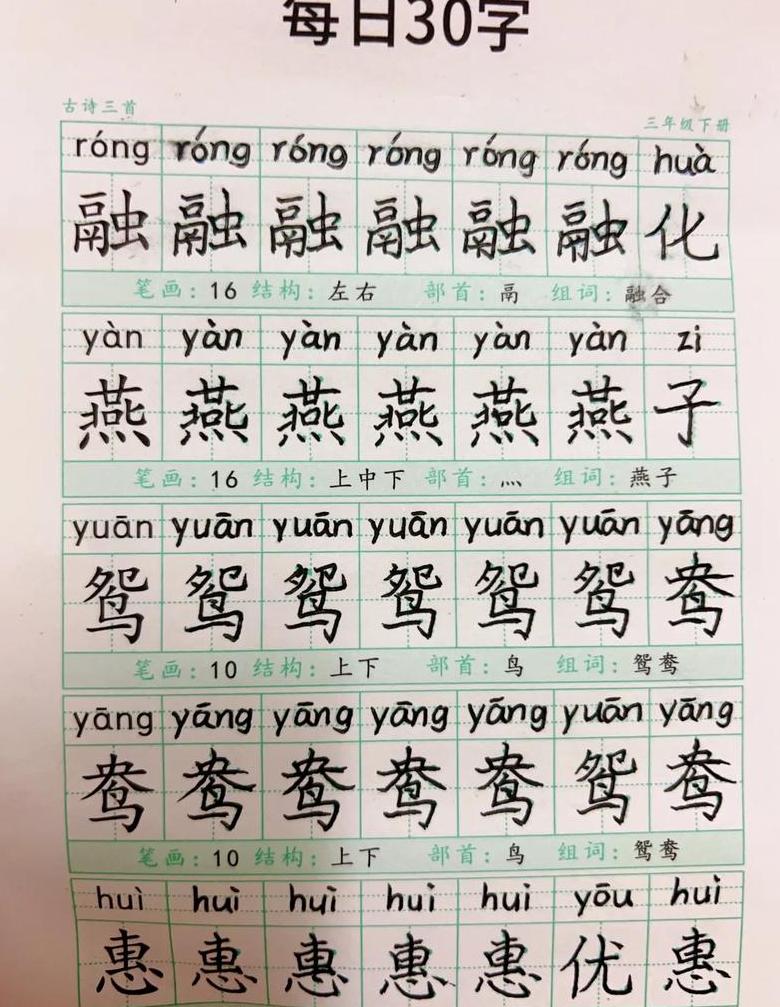 每日30字
古诗三首
三年级下册
róng róng róng róng róng róng huà
融 融 融 融 融 融 化
笔画：16 结构：左右 部首：鬲 组词：融合
yàn yàn yàn yàn yàn yàn zi
燕 燕 燕 燕 燕 燕 子
笔画：16 结构：上中下 部首：灬 组词：燕子
yuān yuān yuān yuān yuān yuān yāng
鸳 鸳 鸳 鸳 鸳 鸳 鸯
笔画：10 结构：上下 部首：鸟 组词：鸳鸯
yāng yāng yāng yāng yāng yuān yāng
鸯 鸯 鸯 鸯 鸯 鸳 鸯
笔画：10 结构：上下 部首：鸟 组词：鸳鸯
huì huì huì huì huì yōu huì
惠 惠 惠 惠 惠 优 惠